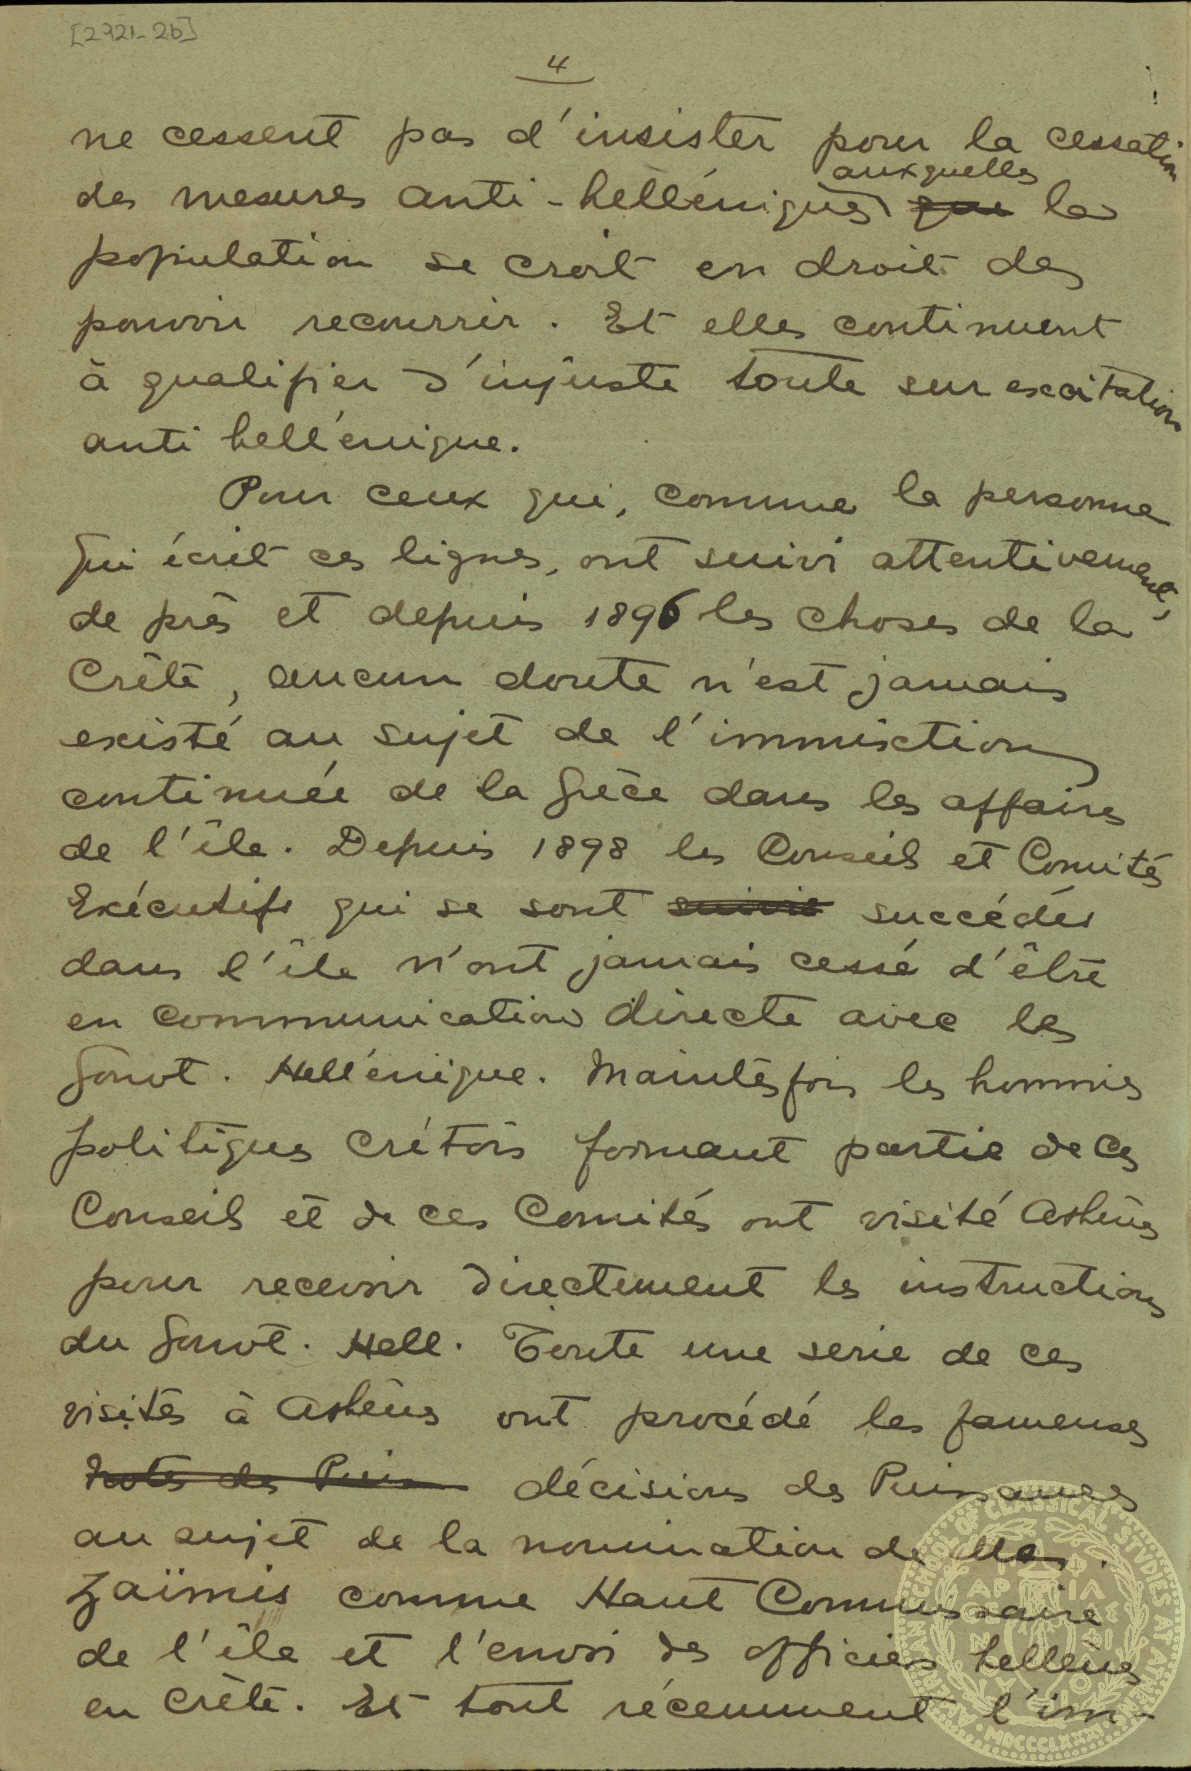 [2721-2b]
4
ne cessent pas d'insister pour la cessation
des mesures anti-helléniques auxquelles la
population se croit en droit de
pouvoir recourrir. Et elles continuent
à qualifier d'injuste toute surexcitation
anti hellénique.
Pour ceux qui, comme la personne
qui écrit ces lignes, ont suivi attentivement,
de près et depuis 1896 les choses de la
Crète, aucun doute n'est jamais
existé au sujet de l'immixtion
continuée de la Grèce dans les affaires
de l'île. Depuis 1898 les Conseils et Comités
Exécutifs qui se sont suivis succédés
dans l'île n'ont jamais cessé d'être
en communication directe avec le
Gouvt. Hellénique. Maintes fois les hommes
politiques crétois formant partie de ces
Conseils et de ces Comités ont visité Athènes
pour recevoir directement les instructions
du Gouvt. Hell. Toute une serie de ces
visites à Athènes ont procédé les fameuses
décisions des Puissances
au sujet de la nomination de
Zaïmis comme Haut Commissaire
de l'île et l'envoi des officiers hellènes
en Crète. Et tout récemment l'im-